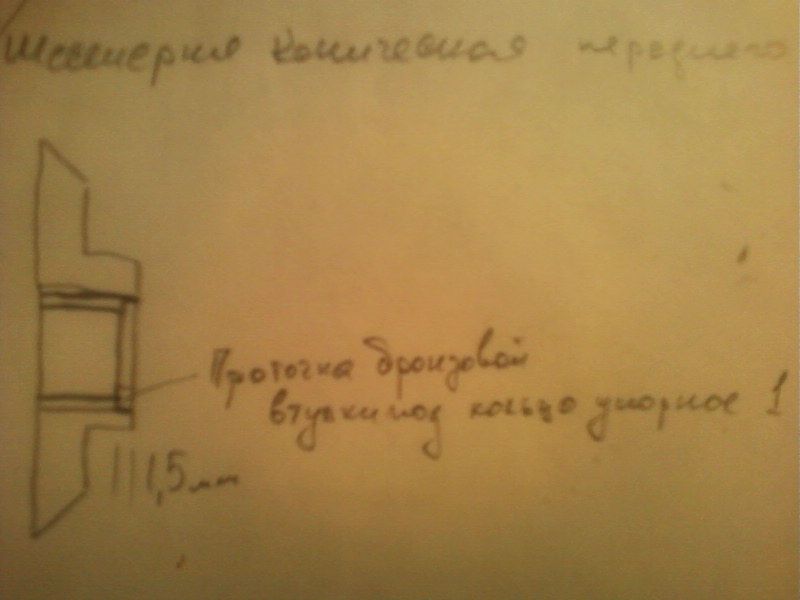 Шестерня коническая переднего
Проточка бронзовой
втулки под кольцо упорное 1
1,5 мм